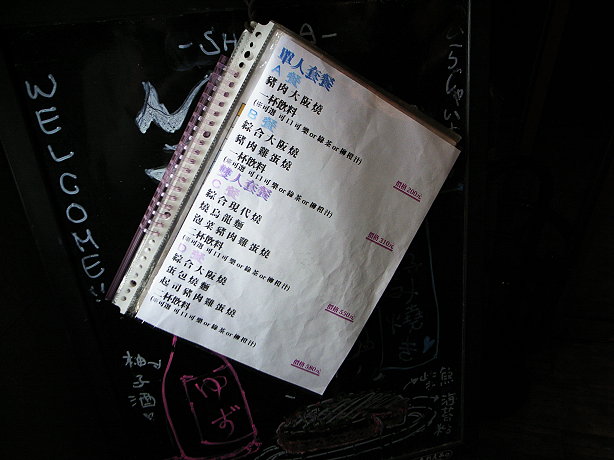 -SH A-
WELCOME!
單人套餐
A 餐
豬肉大阪燒
一杯飲料
(※可選 可口可樂or綠茶or柳橙汁)
價格200元
B 餐
綜合大阪燒
豬肉雞蛋燒
一杯飲料
(※可選 可口可樂or綠茶or柳橙汁)
價格310元
雙人套餐
C 餐
綜合現代燒
燒烏龍麵
泡菜豬肉雞蛋燒
二杯飲料
(※可選 可口可樂or綠茶or柳橙汁)
價格550元
D 餐
綜合大阪燒
蛋包燒麵
起司豬肉雞蛋燒
二杯飲料
(※可選 可口可樂or綠茶or柳橙汁)
價格580元
らっしゃいま
み焼き
柚子酒
ゆず